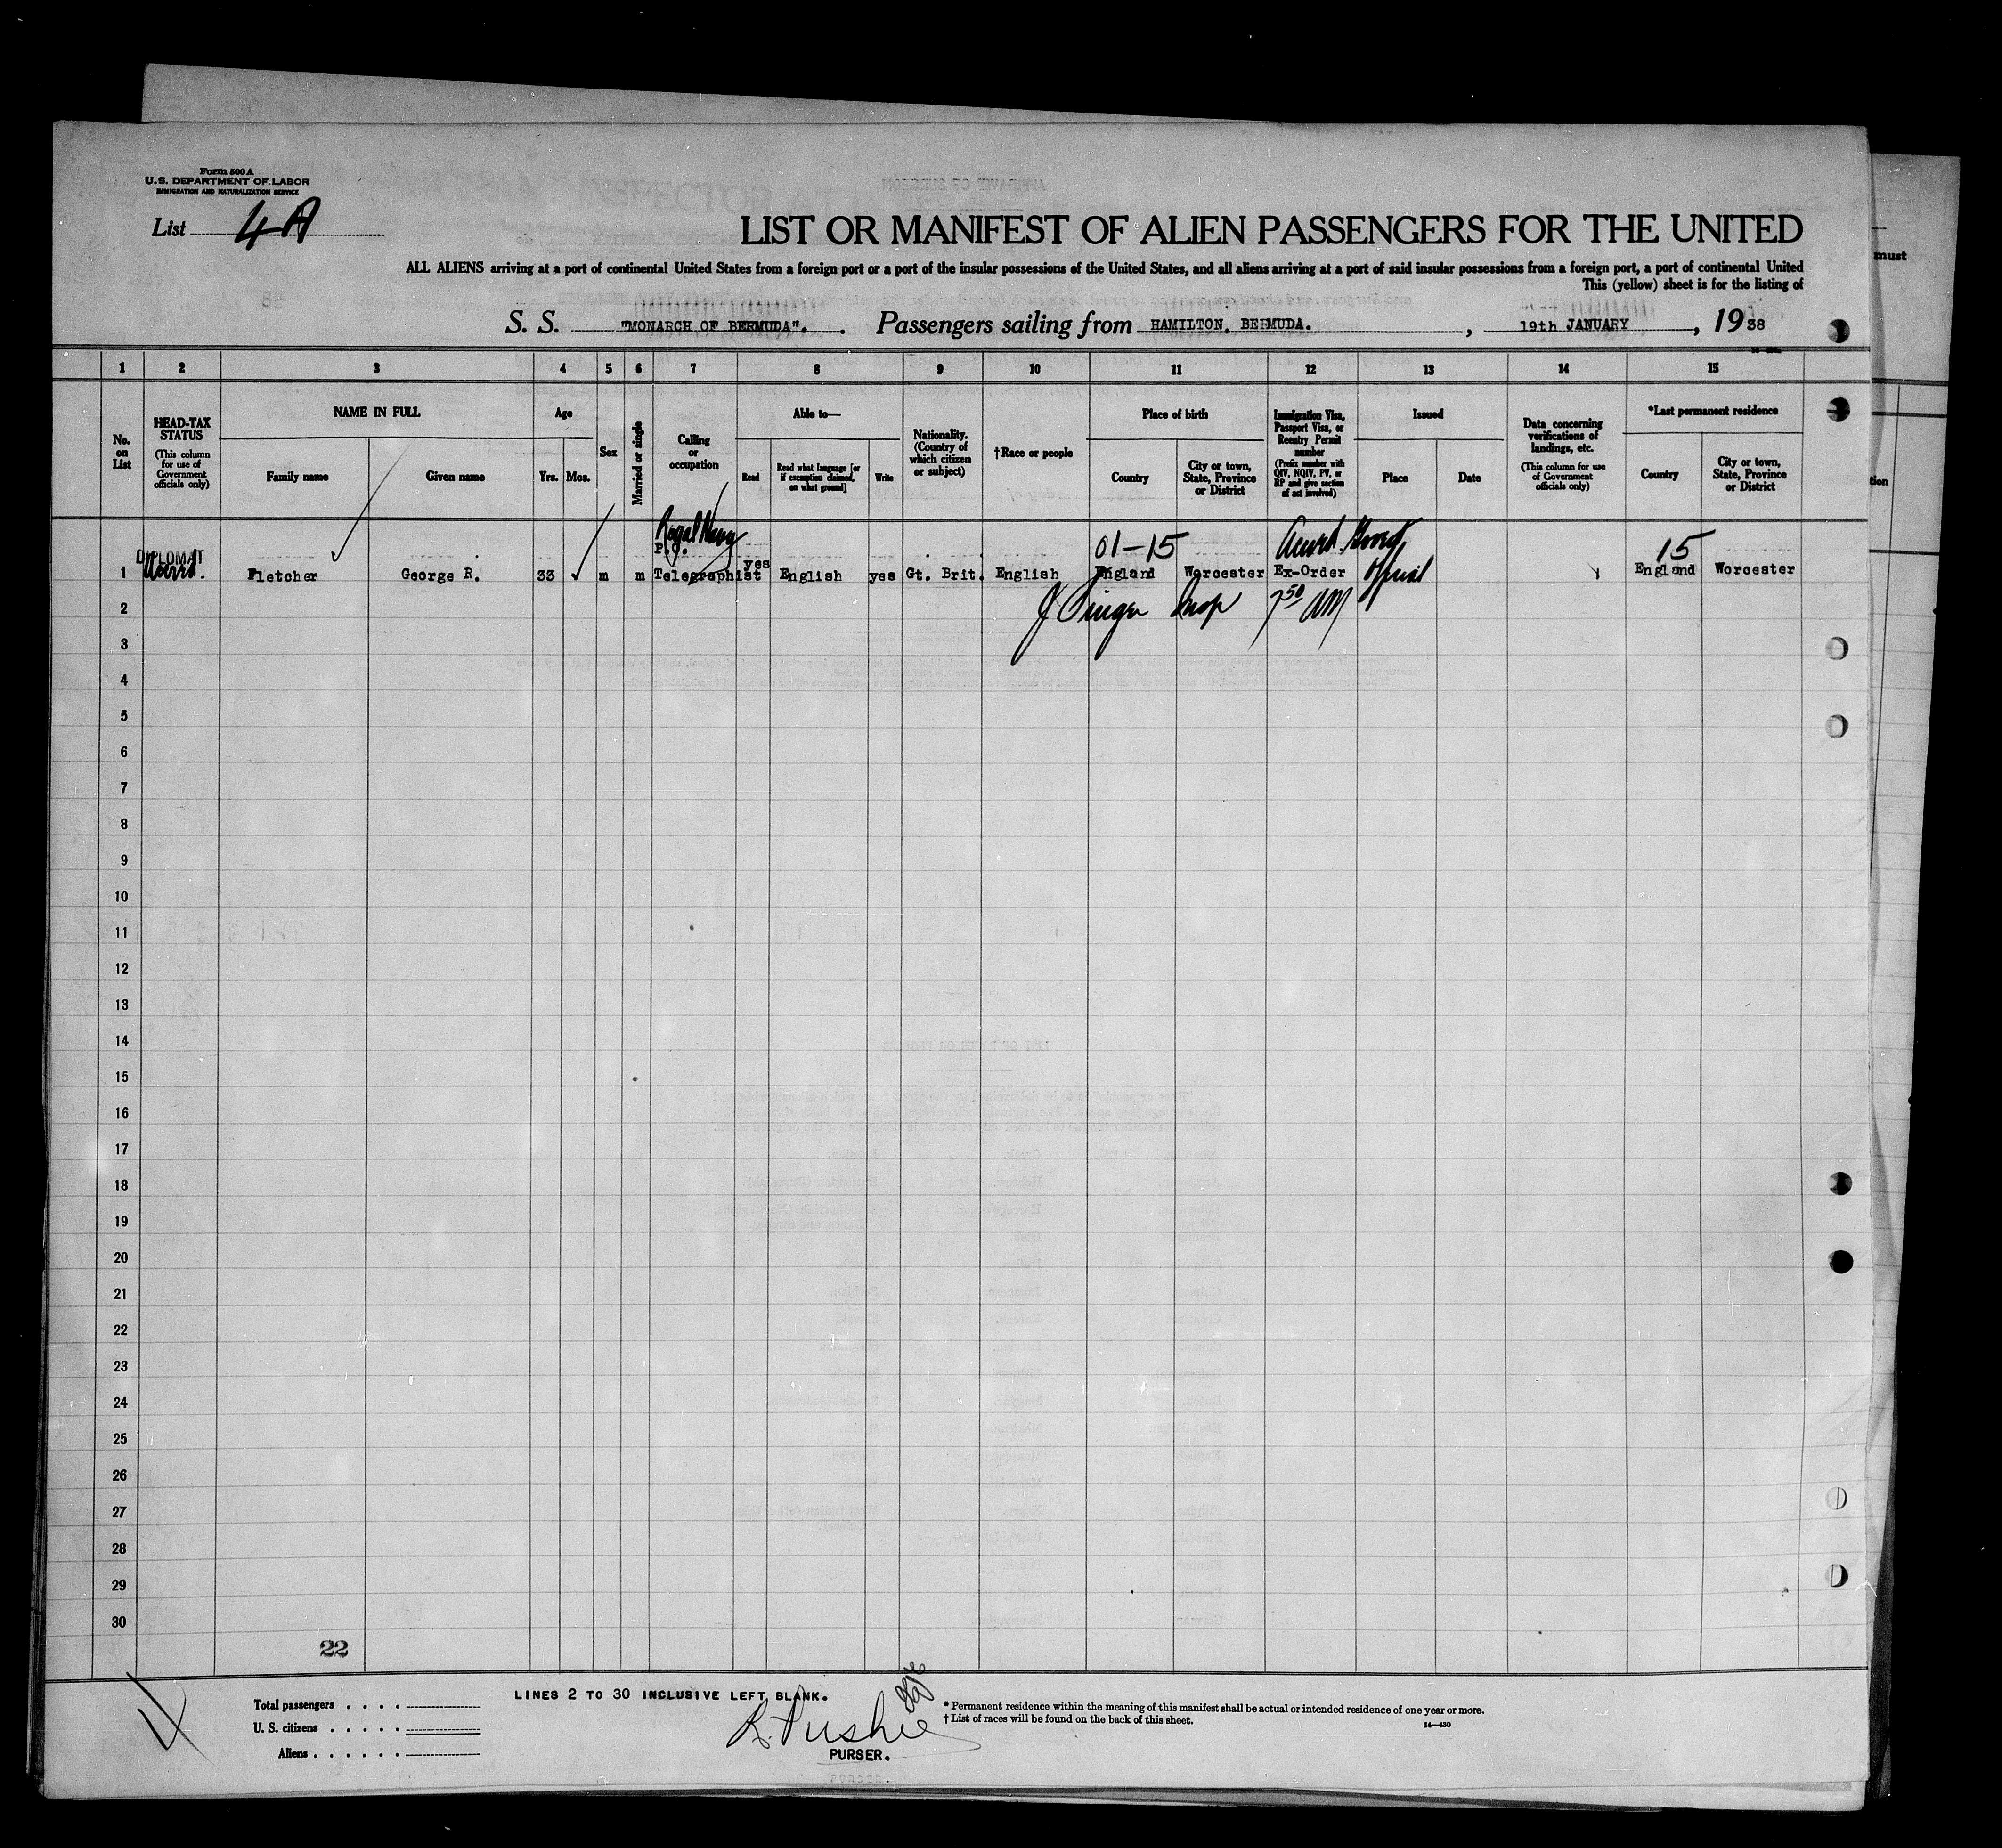 Form 500 A
U.S. DEPARTMENT OF LABOR
IMMIGRATION AND NATURALIZATION SERVICE
List 4A
LIST OR MANIFEST OF ALIEN PASSENGERS FOR THE UNITED
ALL ALIENS arriving at a port of continental United States from a foreign port or a port of the insular possessions of the United States, and all aliens arriving at a port of said insular possessions from a foreign port, a port of continental United
must
This (yellow) sheet is for the listing of
S. S. "MONARCH OF BERMUDA". Passengers sailing from HAMILTON, BERMUDA. , 19th JANUARY , 1938
1 2 3 4 5 6 7 8 9 10 11 12 13 14 15
No. on List
HEAD-TAX STATUS
(This column for use of Government officials only)
NAME IN FULL
Family name
Given name
Age
Yrs. Mos.
Sex
Married or single
Calling or occupation
Able to—
Read
Read what language [or if exemption claimed, on what ground]
Write
Nationality. (Country of which citizen or subject)
†Race or people
Place of birth
Country
City or town, State, Province or District
Immigration Visa, Passport Visa, or Reentry Permit number
(Prefix number with QIV, NQIV, PV, or RP and give section of act involved)
Issued
Place
Date
Data concerning verifications of landings, etc.
(This column for use of Government officials only)
*Last permanent residence
Country
City or town, State, Province or District
tion
Royal Navy
DIPLOMAT P.O. 01-15 Govt 15
1 Fletcher George R. 33 m m Telegraphist yes English yes Gt. Brit. English England Worcester Ex-Order Official England Worcester
2 Insp 7 50 AM
3
4
5
6
7
8
9
10
11
12
13
14
15
16
17
18
19
20
21
22
23
24
25
26
27
28
29
30
22
LINES 2 TO 30 INCLUSIVE LEFT BLANK.
Total passengers
U. S. citizens
Aliens
PURSER.
* Permanent residence within the meaning of this manifest shall be actual or intended residence of one year or more.
† List of races will be found on the back of this sheet.
14—430